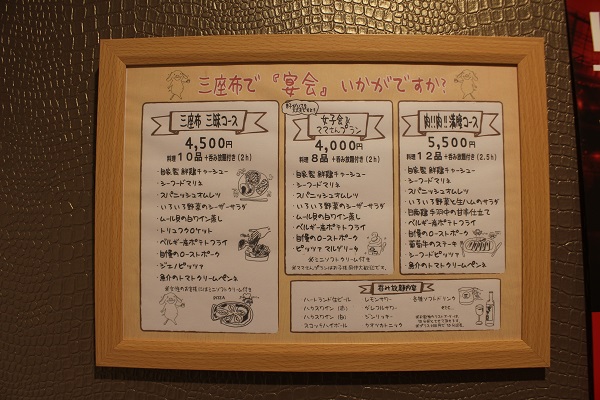 三座布で『宴会』いかがですか?
三座布 三昧コース
4,500円
料理10品+呑み放題付き(2h)
・自家製 鮮鶏チャーシュー
・シーフードマリネ
・スパニッシュオムレツ
・いろいろ野菜のシーザーサラダ
・ムール貝の白ワイン蒸し
・トリュフコロッケ
・ベルギー産ポテトフライ
・自慢のローストポーク
・ピッツァ
・魚介のトマトクリームペンネ
※女性のお客様にはミニソフトクリーム付き
PIZZA
女子会&
ママさんプラン
4,000円
料理8品+呑み放題付き(2h)
・自家製 鮮鶏チャーシュー
・シーフードマリネ
・スパニッシュオムレツ
・いろいろ野菜のシーザーサラダ
・ムール貝の白ワイン蒸し
・ベルギー産ポテトフライ
・自慢のローストポーク
・ピッツァ マルゲリータ
※ミニソフトクリーム付
肉!!肉!!満腹コース
5,500円
料理12品+呑み放題付き(2.5h)
・自家製 鮮鶏チャーシュー
・シーフードマリネ
・スパニッシュオムレツ
・いろいろ野菜と生ハムのサラダ
・ムール貝の白ワイン蒸し
・ベルギー産ポテトフライ
・自慢のローストポーク
・葡萄牛のステーキ
・シーフードピッツァ
・魚介のトマトクリームペンネ
呑み放題内容
ハートランド生ビール
ハウスワイン(赤)
ハウスワイン(白)
スコッチハイボール
レモンサワー
グレフルサワー
ジンリッキー
ウオツカトニック
各種ソフトドリンク